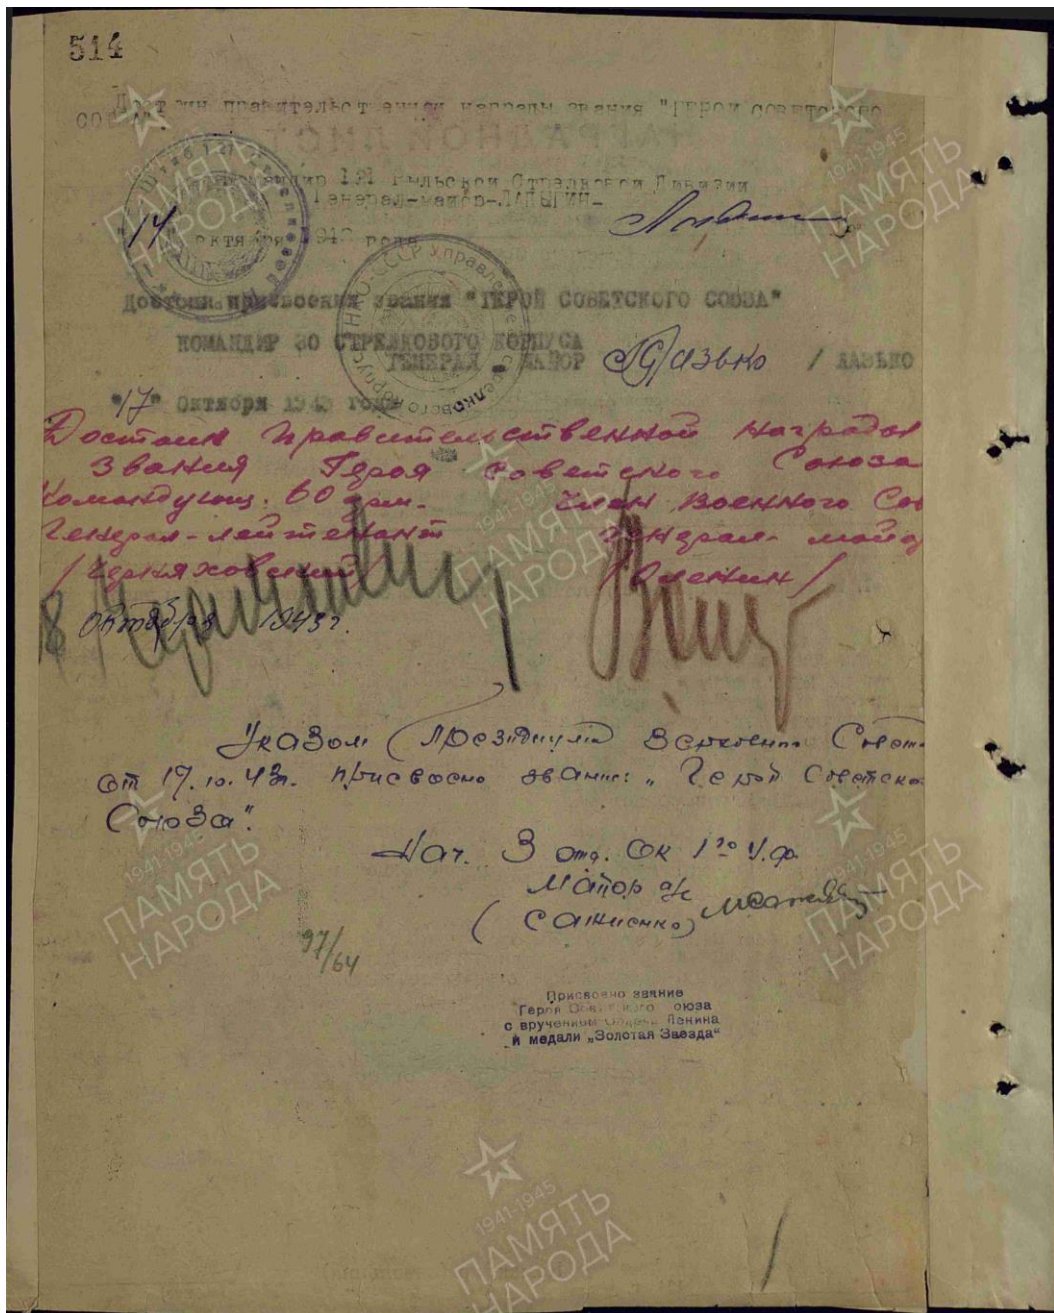 514
Достоин правительственной награды звания "Герой Советского
Союза"
Командир 121 Рыльской Стрелковой Дивизии
Генерал-майор-ЛАДЫГИН-
"14" октября 1943 года
Достоин присвоения звания "ГЕРОЙ СОВЕТСКОГО СОЮЗА"
КОМАНДИР 30 СТРЕЛКОВОГО КОРПУСА
ГЕНЕРАЛ - МАЙОР / ЛАЗЬКО
"17" Октября 1943 года
Достоин Правительственной Награды
звания Героя Советского Союза
Командующ. 60 арм. Член Военного Сов
Генерал-лейтенант Генерал-майор
/Черняховский/ /Оленин/
18 октября 1943 г.
Указом Президиума Верховного Совета
от 17.10.43г. присвоено звание: "Герой Советско
Союза".
Нач. 3 отд. ОК 1го У.ф.
Майор а/с
97/64
Присвоено звание
Героя Советского Союза
с вручением Ордена Ленина
и медали „Золотая Звезда“
1941-1945
ПАМЯТЬ
НАРОДА